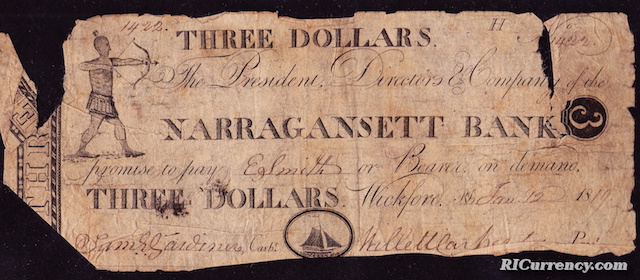 1422. H
THREE DOLLARS.
The President, Directors & Company of the
NARRAGANSETT BANK
3
promise to pay E Smith or Bearer on demand.
THREE DOLLARS. Wickford, Jan. 12 18
Cash. Willett Carpenter Pres
THREE
RICurrency.com